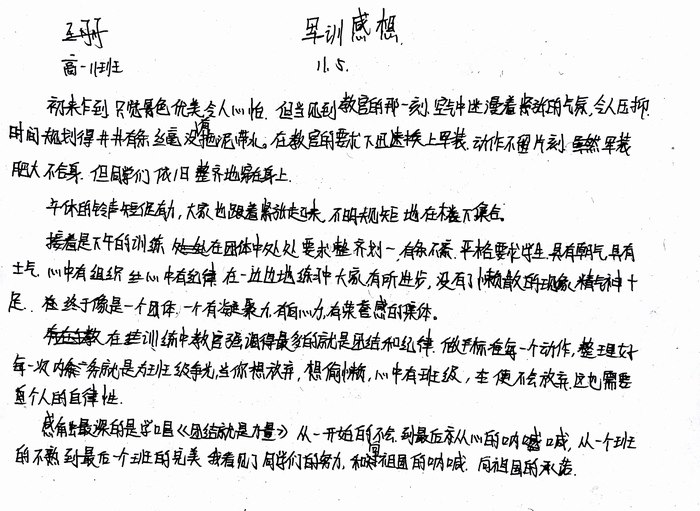 军训感想
高一11班
11.5.
初来乍到 只觉景色优美令人心怡. 但当见到教官的那一刻, 空气中迷漫着紧张的气氛, 令人压抑.
时间规划得井井有条 丝毫没有拖泥带水. 在教官的要求下迅速换上军装, 动作不留片刻. 虽然军装
肥大不合身. 但同学们依旧整齐地穿在身上.
午休的铃声短促有力, 大家也跟着紧张起来, 不明规矩地在楼下集合。
接着是下午的训练 在团体中处处要求整齐划一, 有条不紊. 严格要求学生具有朝气, 具有
士气, 心中有组织 心中有纪律 在一边边地练习中大家有所进步, 没有了懒散的现象, 精气神十
足. 终于像是一个团体, 一个有凝聚力, 有向心力, 有荣誉感的集体。
在训练中教官强调得最多的就是团结和纪律. 做严标准每一个动作, 整理好
每一次内务就是为班级争光, 当你想放弃, 想偷懒, 心中有班级, 便不会放弃, 这也需要
每个人的自律性.
感触最深的是学唱《团结就是力量》从一开始的不会, 到最后来从心的呐喊, 从一个班
的不熟到最后一个班的完美 我看见了同学们的努力, 和对祖国的呐喊. 向祖国的承诺.